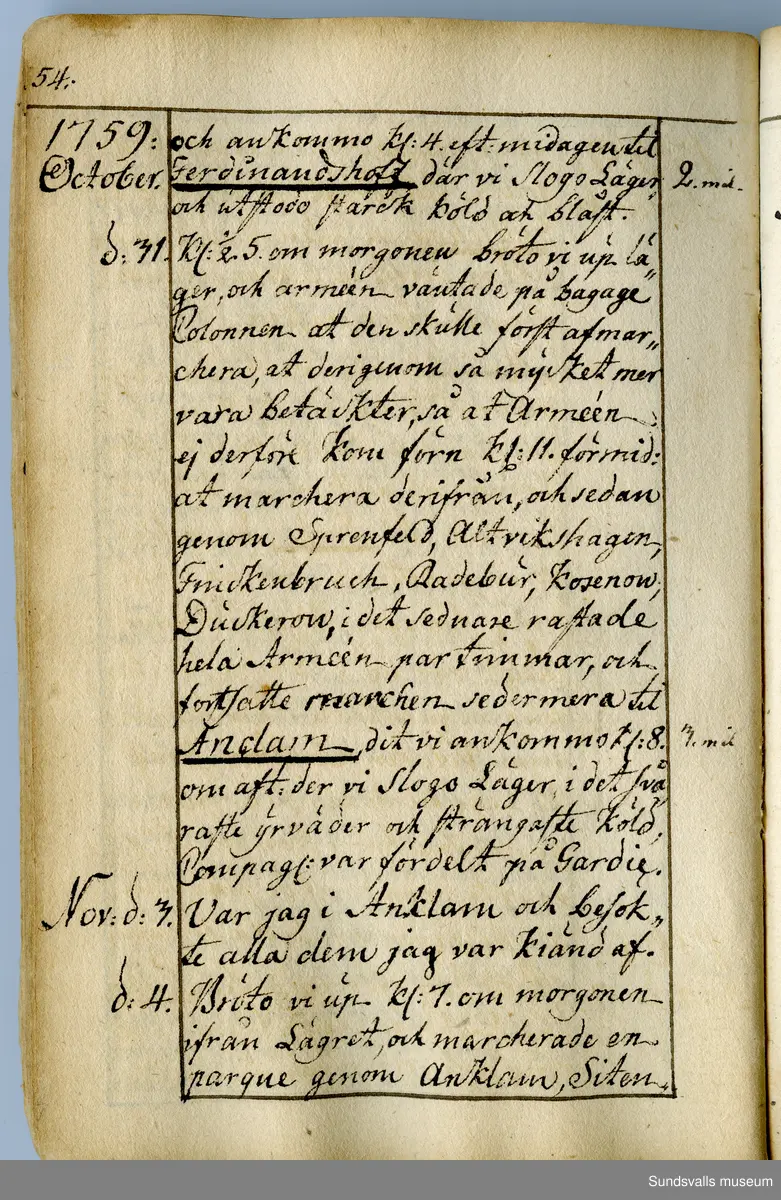 54.
1759:
October.
och ankommo Kl: 4. eft: midagen til
Ferdinandshoff där vi Slogo Läger,
2. mil.
och utstodo stärck köld och blåst.
d: 31.
Kl: ½ 5. om morgonen bröto vi up lä„
ger, och arméen väntade på bagage
Colonnen at den skulle först afmar„
chera, at derigenom så mycket mer
vara betäckter, så at Arméen
ej derföre kom förn Kl: 11. förmid:
at marchera derifrån, och sedan
genom Sprenfeld, Altvikshagen,
Finckenbruch, Radebur, Kosenow,
Duckerow, i det sednare rastade
hela Arméen par timmar, och
fortsatte marchen sedermera til
Anclam, dit vi ankommo Kl: 8.
3. mil
om aft: der vi Slogo Läger, i det svå
raste yrväder och strängaste köld,
Compagt: var fördelt på Gardie.
Nov: d: 3.
Var jag i Anklam och besök„
te alla dem jag var kiänd af.
d: 4.
Bröto vi up Kl: 7. om morgonen
ifrån Lägret, och marcherade en
parque genom Anklam, Siten„
Sundsvalls museum